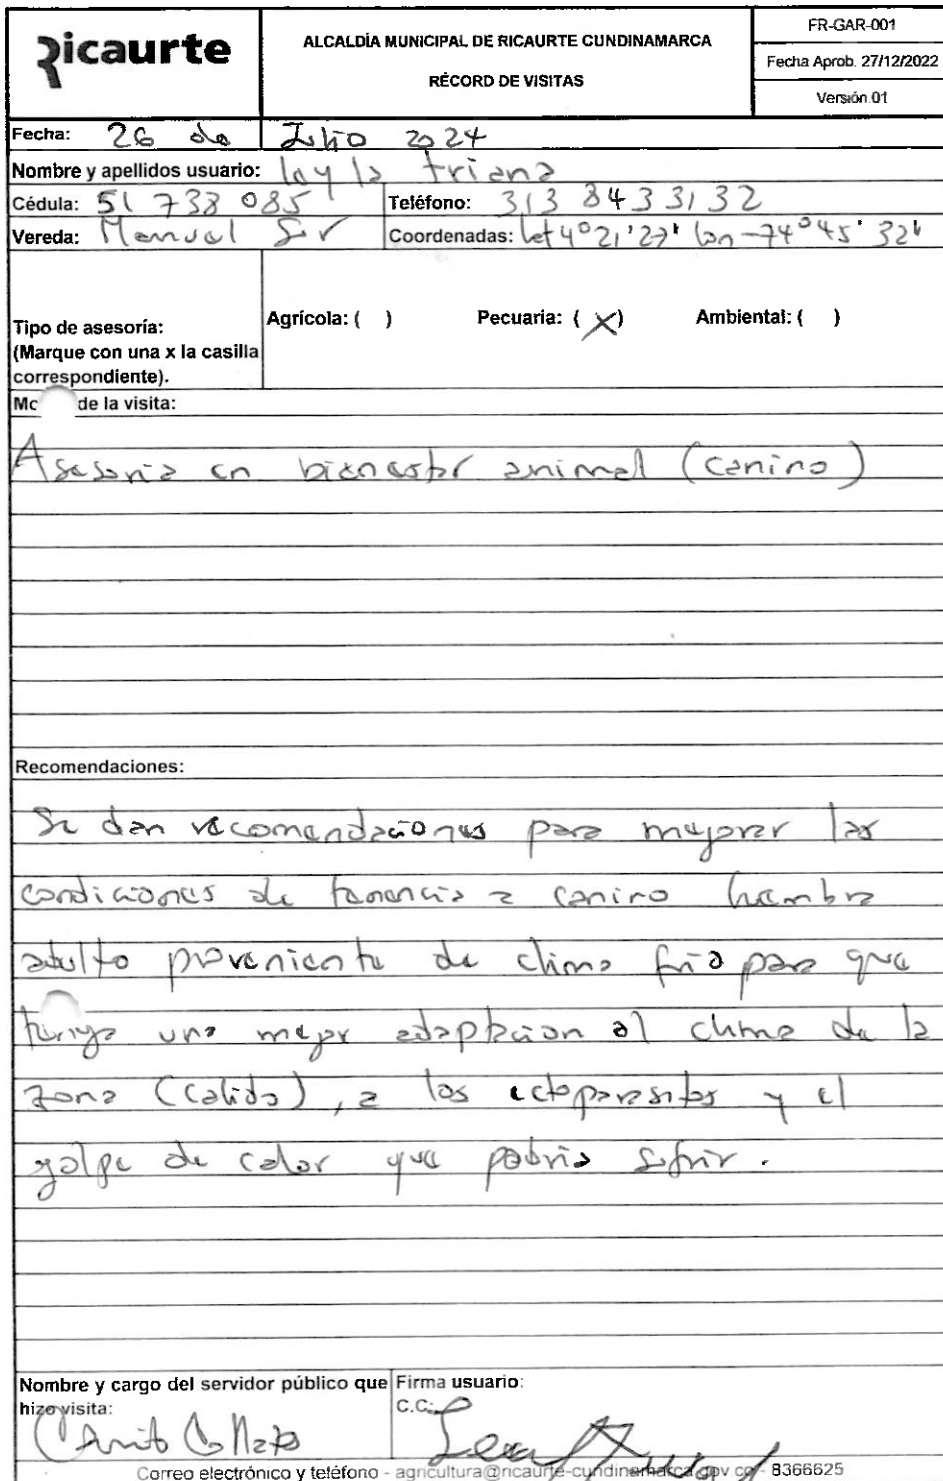 Ricaurte
ALCALDÍA MUNICIPAL DE RICAURTE CUNDINAMARCA
RÉCORD DE VISITAS
FR-GAR-001
Fecha Aprob. 27/12/2022
Versión 01
Fecha: 26 de Julio 2024
Nombre y apellidos usuario: layla triana
Cédula: 51 738 085 Teléfono: 313 8433132
Vereda: Manuel Sur Coordenadas: lat 4° 21' 27" lon -74° 45' 32"
Tipo de asesoría:
(Marque con una x la casilla
correspondiente).
Agrícola: ( ) Pecuaria: ( X ) Ambiental: ( )
de la visita:
Asesoria en bienestar animal (canino)
Recomendaciones:
Se dan recomendaciones para mejorar las
condiciones de tenencia a canino hembra
adulto proveniente de clima frio para que
tenga una mejor adaptacion al clima de la
zona (calido), a los ectoparasitos y el
golpe de calor que podria sufrir.
Nombre y cargo del servidor público que
hizo visita:
Firma usuario:
C.C:
Correo electrónico y teléfono - agricultura@ricaurte-cundinamarca.gov.co - 8366625